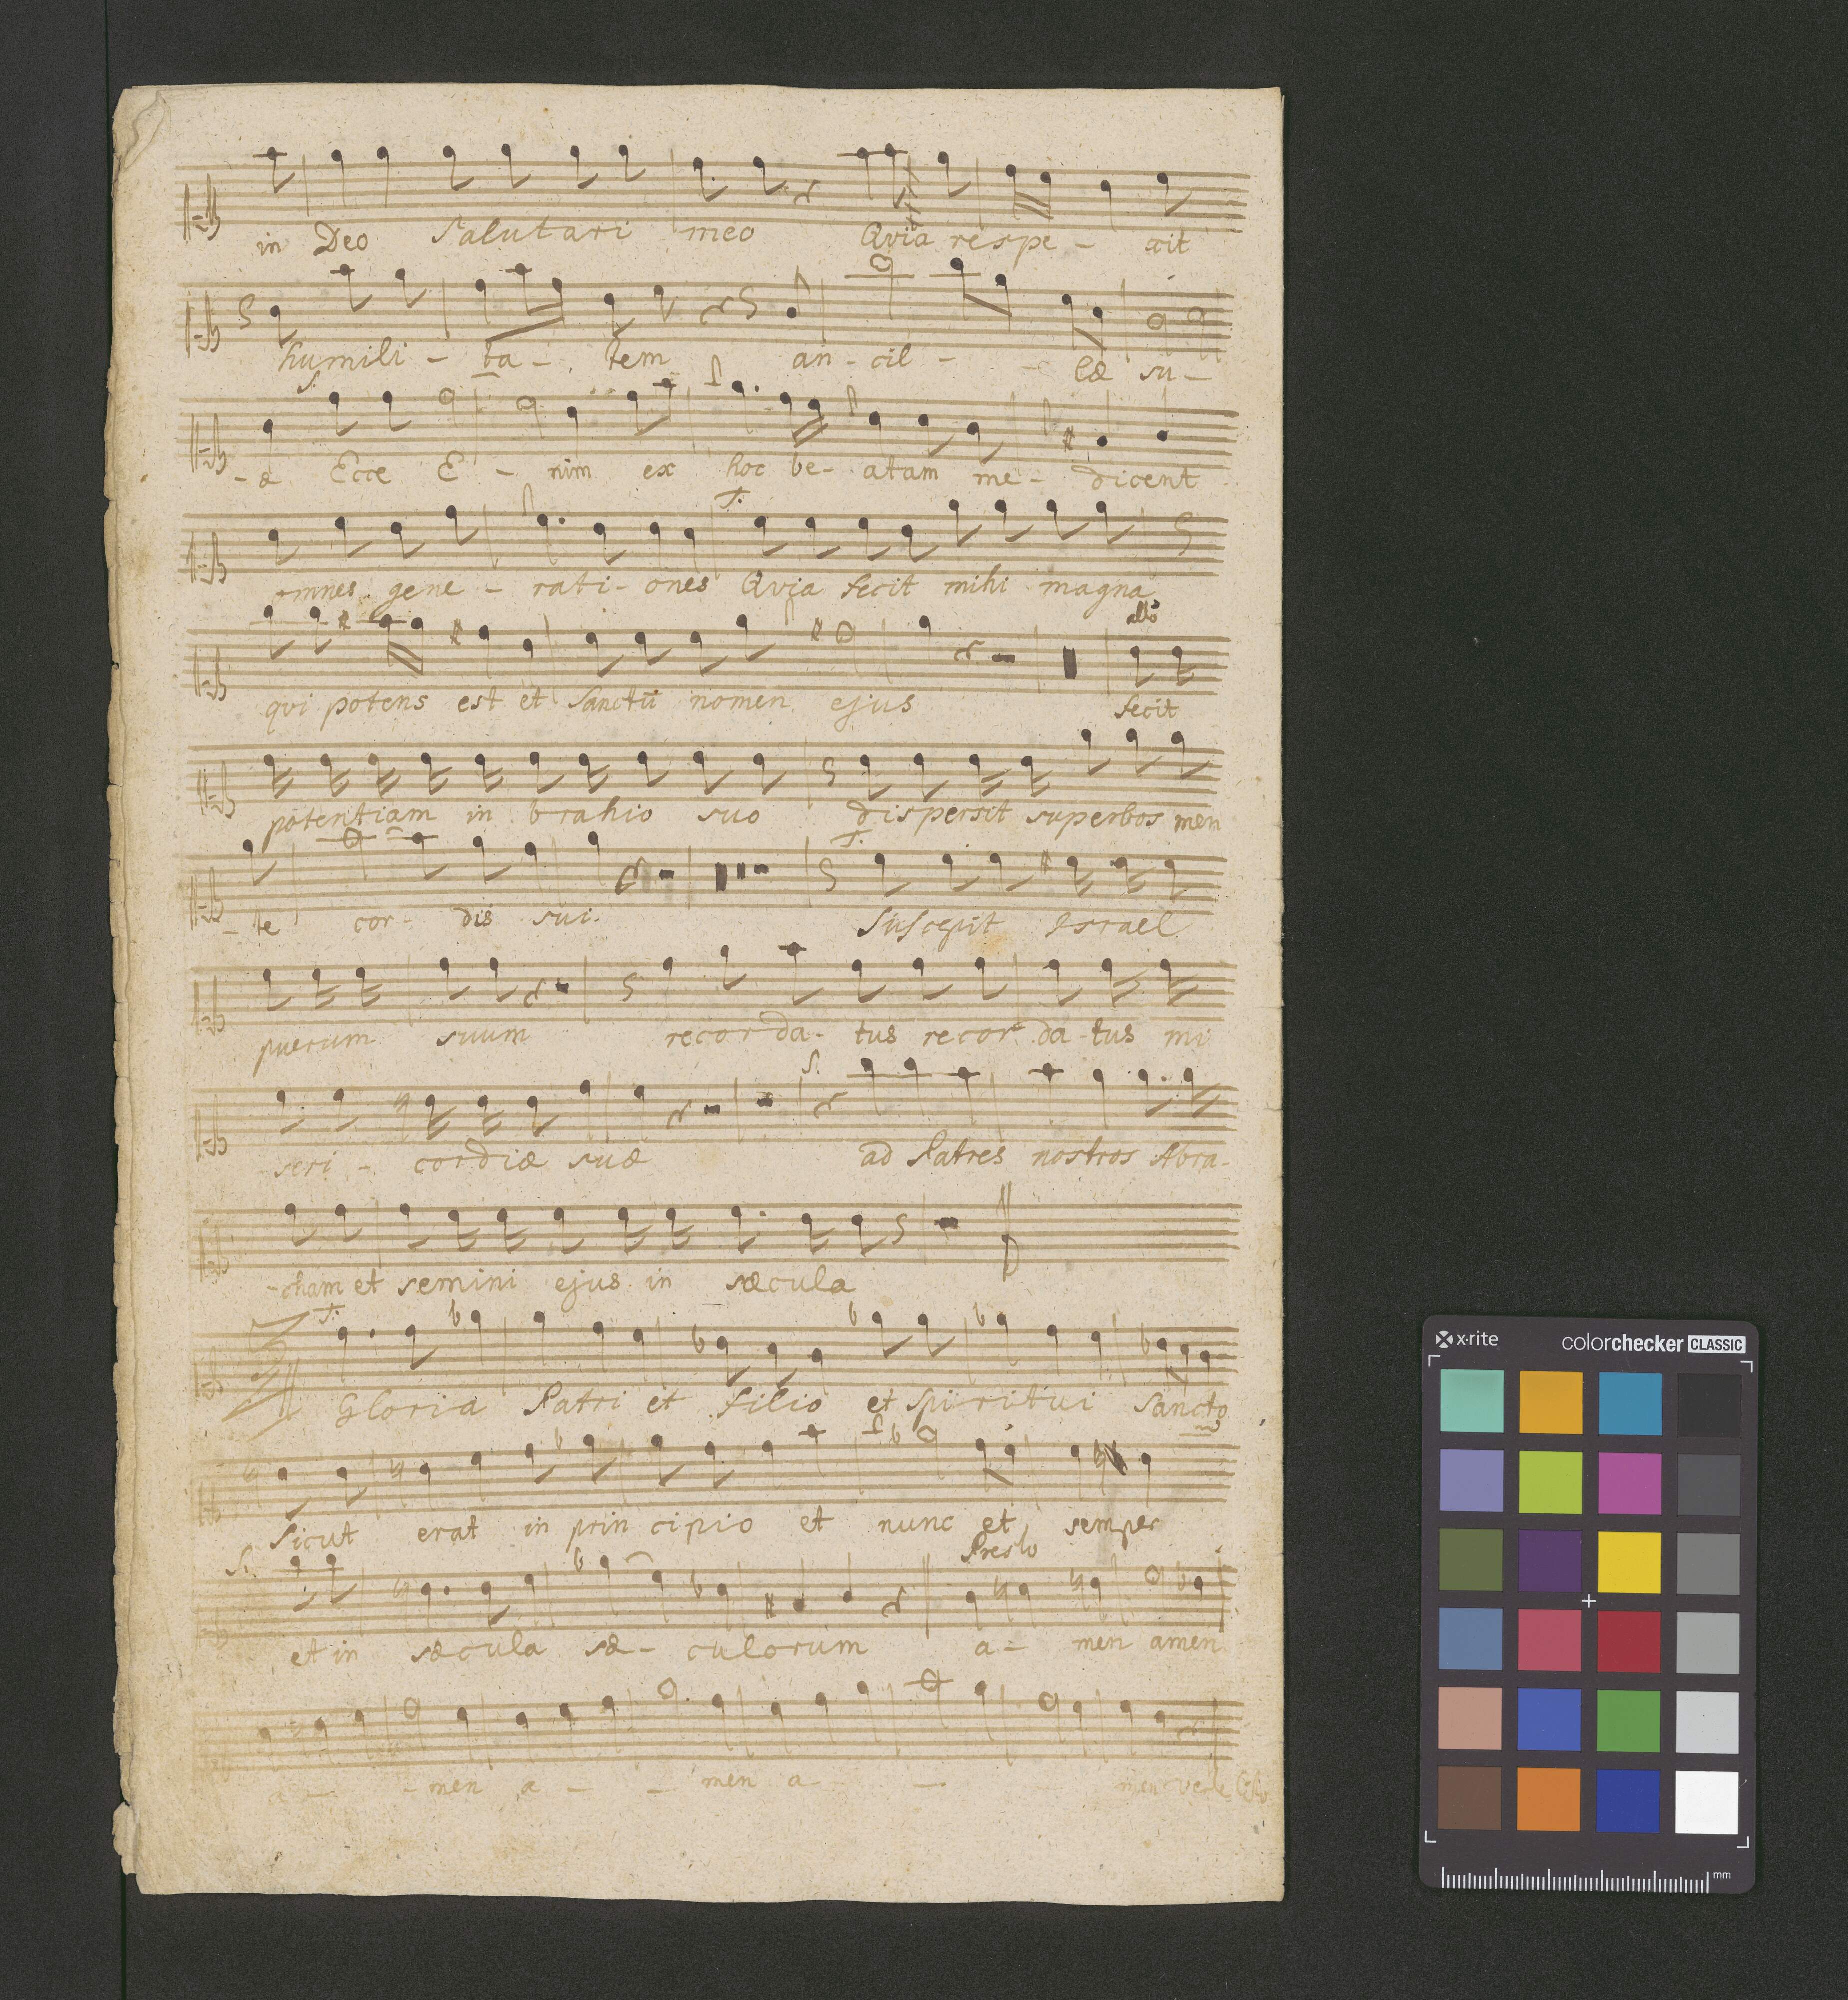 in Deo Salutari meo Qvia respe - xit
humili - ta - tem an - cil - læ su -
S.
- æ Ecce E - nim ex hoc be - atam me - dicent
T.
omnes gene - rati - ones Qvia fecit mihi magna
allo
qvi potens est et Sanctū nomen ejus fecit
potentiam in brahio suo dispersit superbos men
T.
- te cor - dis sui. Suscepit Israel
puerum suum recorda - tus recor da - tus mi
S.
seri - cordiæ suæ ad Patres nostros Abra -
- cham et semini ejus in sæcula
T.
Gloria Patri et filio et Spiritui Sancto
Sicut erat in prin cipio et nunc et semper
S. Presto
et in sæcula sæ - culorum a - men amen
a - - men a - - men a - - men
x·rite colorchecker CLASSIC
mm